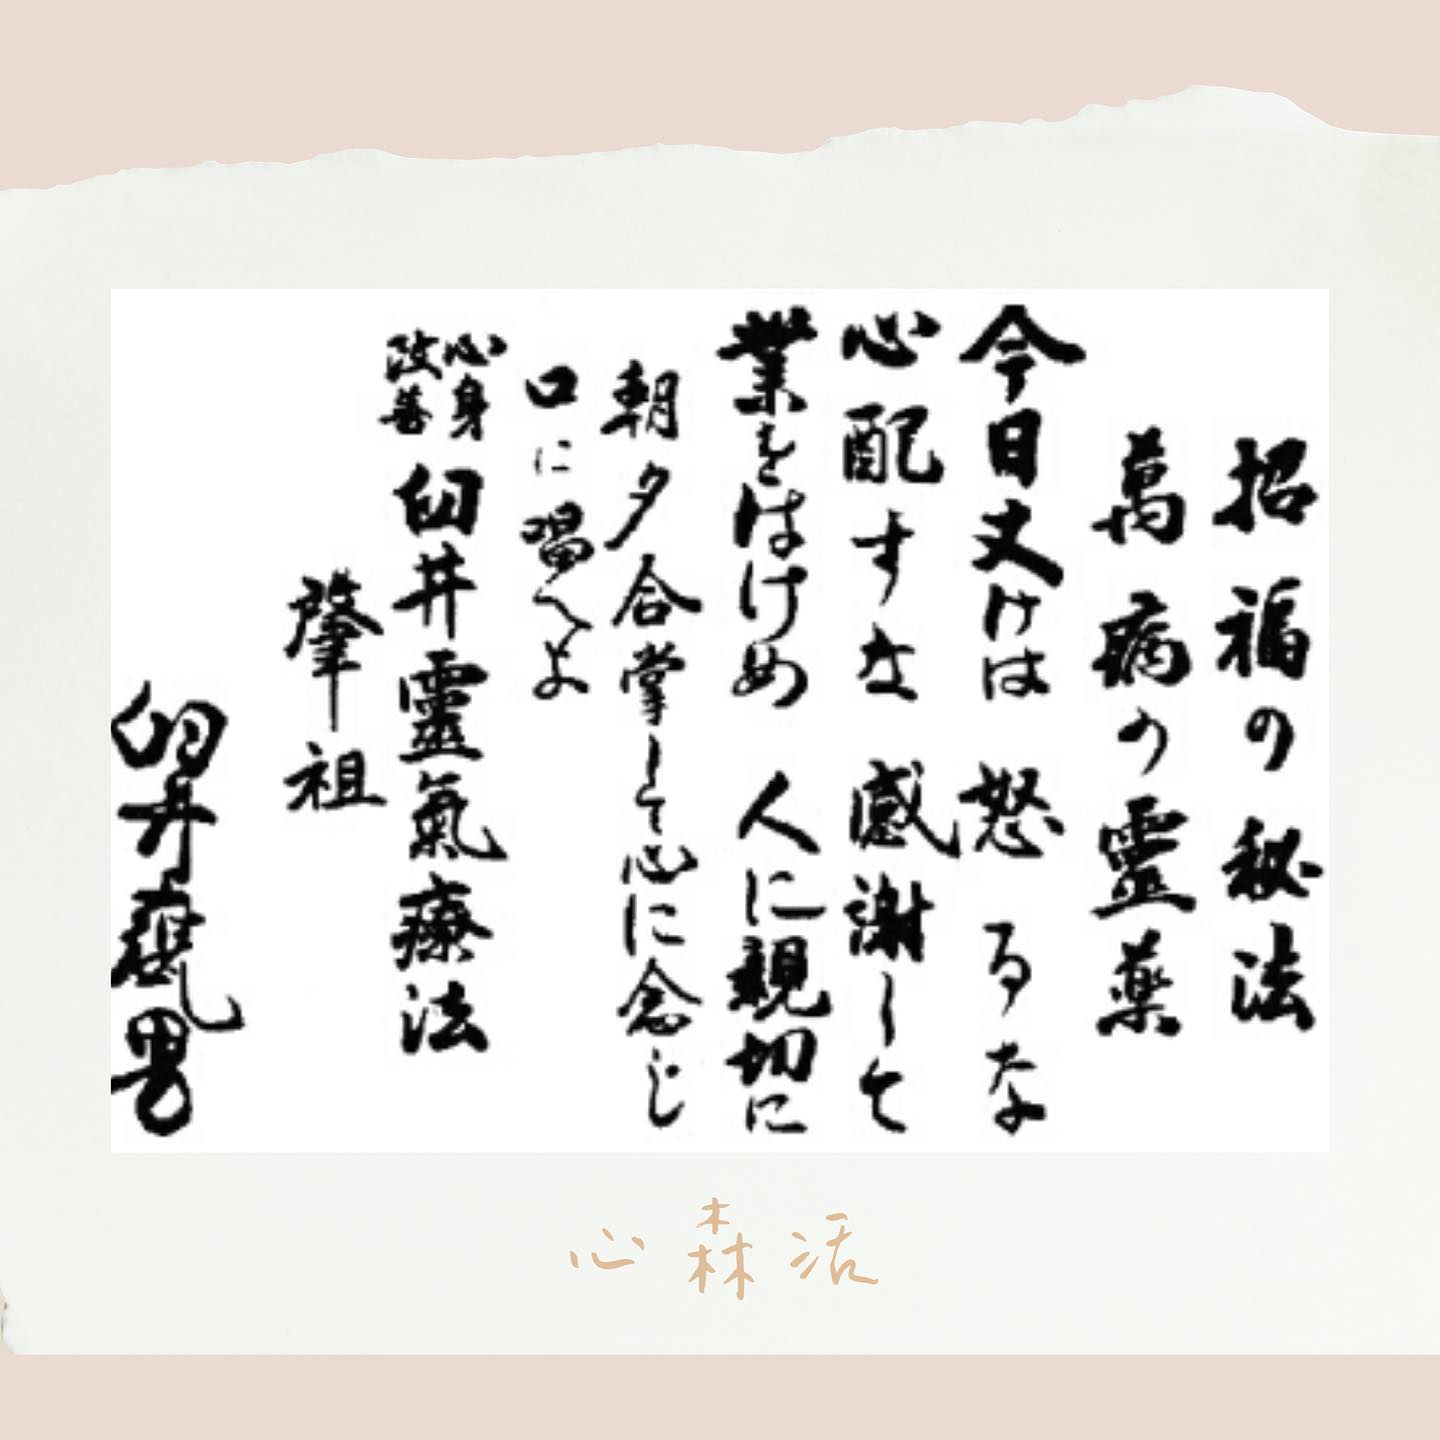 招福の秘法
萬病の靈薬
今日丈けは 怒るな
心配すな 感謝して
業をはけめ 人に親切に
朝夕合掌して心に念じ
口に唱へよ
心身
改善
臼井靈氣療法
肇祖
臼井甕男
心森活